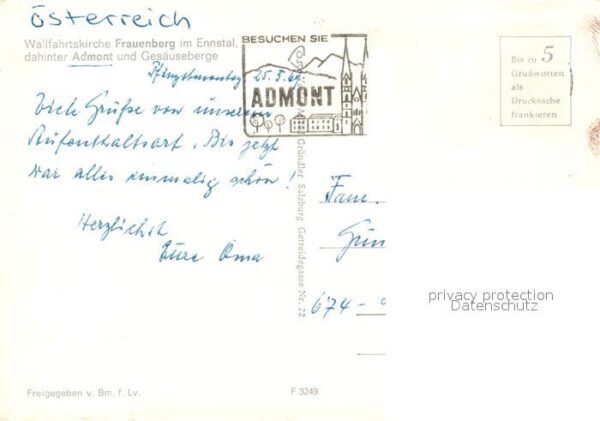 Österreich
Wallfahrtskirche Frauenberg im Ennstal,
dahinter Admont und Gesäuseberge
BESUCHEN SIE
ADMONT
Bis zu 5
Grußworten
als
Drucksache
frankieren
Pfingstmontag 25.5.
Viele Grüße von unserem
Aufenthaltsort. Bis jetzt
war alles einmalig schön!
Herzlichst
Eure Oma
Gründler Salzburg Getreidegasse Nr. 22
Fam.
Gün
674-
privacy protection
Datenschutz
Freigegeben v. Bm. f. Lv.
F 3249